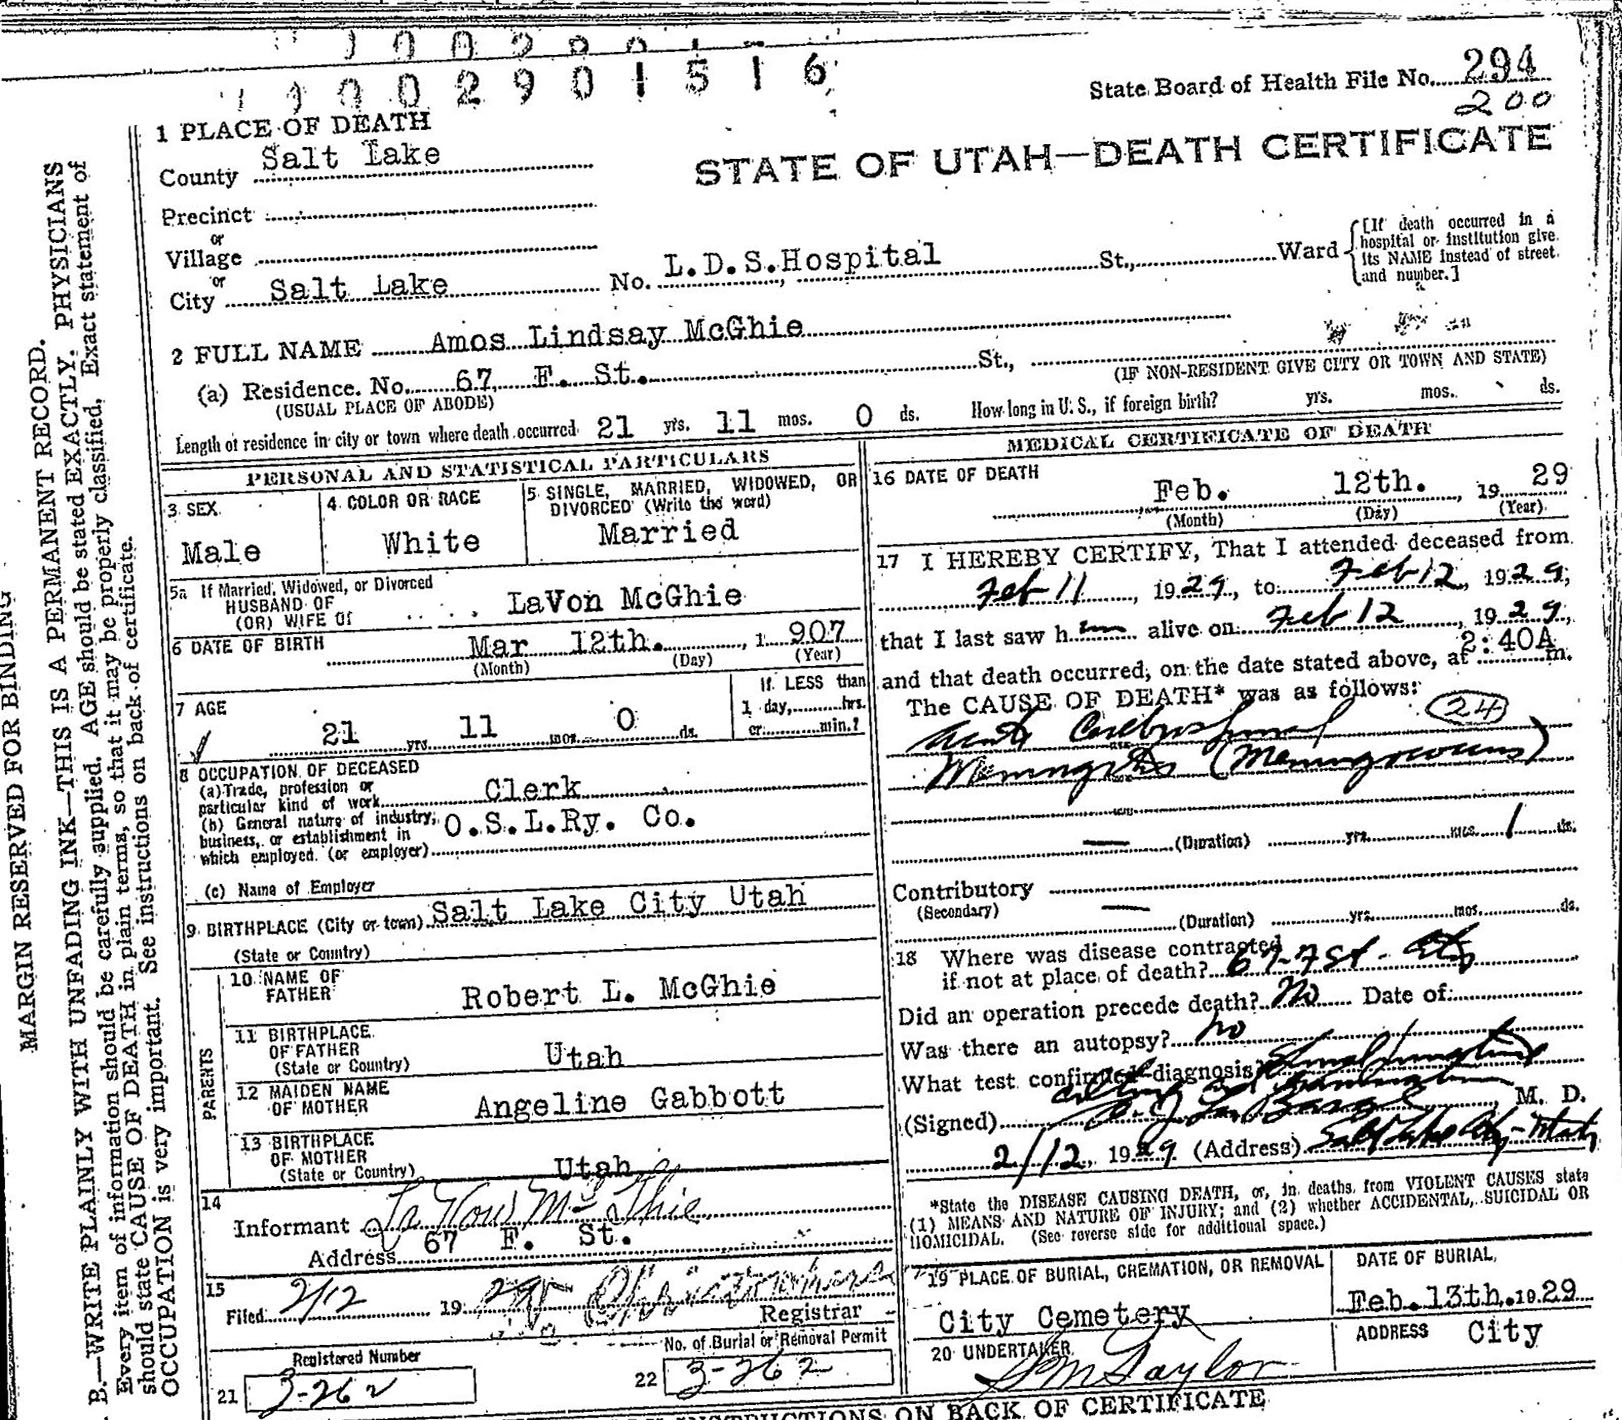 1 0 0 2 9 0 1 5 1 6
State Board of Health File No. 294
200
1 PLACE OF DEATH
STATE OF UTAH—DEATH CERTIFICATE
County Salt Lake
Precinct
or
Village
or
City Salt Lake No. L.D.S.Hospital St., Ward
[If death occurred in a
hospital or institution give
its NAME instead of street
and number.]
2 FULL NAME Amos Lindsay McGhie
(a) Residence. No. 67 F. St. St.,
(USUAL PLACE OF ABODE) (IF NON-RESIDENT GIVE CITY OR TOWN AND STATE)
Length of residence in city or town where death occurred 21 yrs. 11 mos. 0 ds. How long in U. S., if foreign birth? yrs. mos. ds.
PERSONAL AND STATISTICAL PARTICULARS
3 SEX
Male
4 COLOR OR RACE
White
5 SINGLE, MARRIED, WIDOWED, OR
DIVORCED (Write the word)
Married
5a If Married, Widowed, or Divorced
HUSBAND OF
(OR) WIFE OF LaVon McGhie
6 DATE OF BIRTH Mar 12th. , 1 907
(Month) (Day) (Year)
7 AGE
21 yrs. 11 mos. 0 ds.
If LESS than
1 day, hrs.
or min.?
8 OCCUPATION OF DECEASED
(a) Trade, profession or
particular kind of work Clerk
(b) General nature of industry,
business, or establishment in
which employed (or employer) O.S.L.Ry. Co.
(c) Name of Employer
9 BIRTHPLACE (City or town) Salt Lake City Utah
(State or Country)
PARENTS
10 NAME OF
FATHER Robert L. McGhie
11 BIRTHPLACE
OF FATHER
(State or Country) Utah
12 MAIDEN NAME
OF MOTHER Angeline Gabbott
13 BIRTHPLACE
OF MOTHER
(State or Country) Utah
14
Informant La Von McGhie
Address 67 F. St.
15
Filed 2/12 19 29
Registrar
Registered Number
21 3-262
No. of Burial or Removal Permit
22 3-262
MEDICAL CERTIFICATE OF DEATH
16 DATE OF DEATH
Feb. 12th. , 19 29
(Month) (Day) (Year)
17 I HEREBY CERTIFY, That I attended deceased from
Feb 11 , 1929, to Feb 12, 1929,
that I last saw him alive on Feb 12 , 1929,
and that death occurred, on the date stated above, at 2:40A m.
The CAUSE OF DEATH* was as follows:
24
Acute Cerebrospinal
Meningitis (Meningococcus)
(Duration) yrs. mos. 1 ds.
Contributory
(Secondary)
(Duration) yrs. mos. ds.
18 Where was disease contracted
if not at place of death? 67-F St. City
Did an operation precede death? No Date of:
Was there an autopsy? No
What test confirmed diagnosis?
(Signed) M. D.
2/12, 1929 (Address) Salt Lake City-Utah
*State the DISEASE CAUSING DEATH, or, in deaths from VIOLENT CAUSES state
(1) MEANS AND NATURE OF INJURY; and (2) whether ACCIDENTAL, SUICIDAL OR
HOMICIDAL. (See reverse side for additional space.)
19 PLACE OF BURIAL, CREMATION, OR REMOVAL
City Cemetery
DATE OF BURIAL,
Feb. 13th. 19 29
20 UNDERTAKER
S M Taylor
ADDRESS City
INSTRUCTIONS ON BACK OF CERTIFICATE
MARGIN RESERVED FOR BINDING
B.—WRITE PLAINLY WITH UNFADING INK—THIS IS A PERMANENT RECORD.
Every item of information should be carefully supplied. AGE should be stated EXACTLY. PHYSICIANS
should state CAUSE OF DEATH in plain terms, so that it may be properly classified. Exact statement of
OCCUPATION is very important. See instructions on back of certificate.